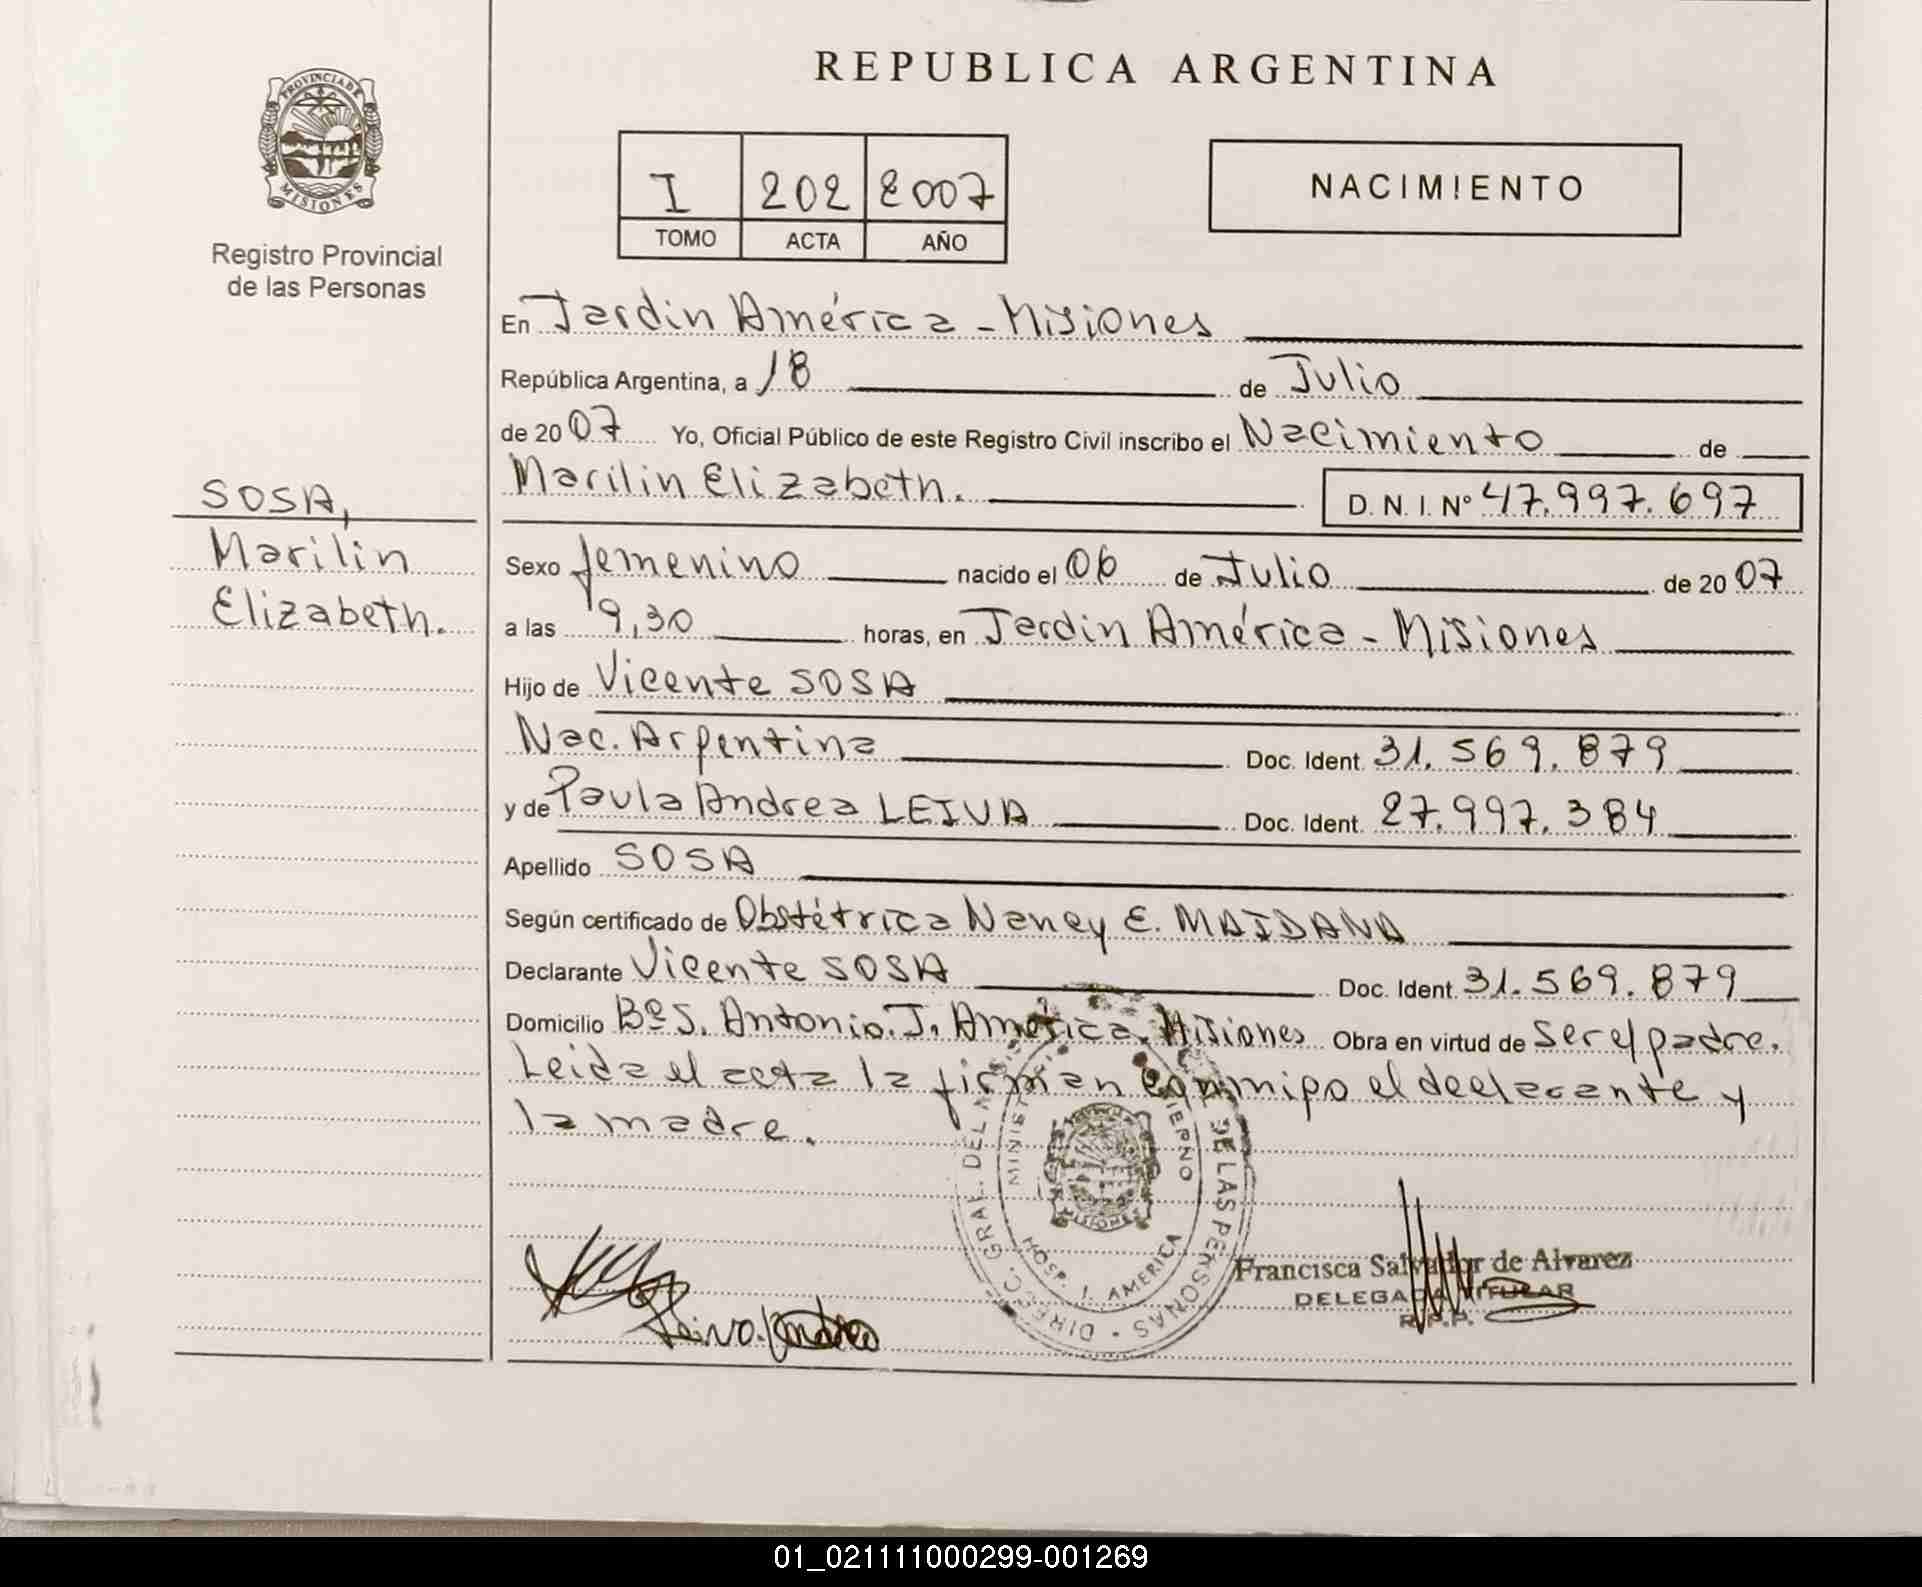 REPUBLICA ARGENTINA
PROVINCIA DE MISIONES
Registro Provincial
de las Personas
I 202 2007
TOMO ACTA AÑO
NACIMIENTO
SOSA,
Marilin
Elizabeth.
En Jardin América - Misiones
República Argentina, a 18 de Julio
de 2007 Yo, Oficial Público de este Registro Civil inscribo el Nacimiento de
Marilin Elizabeth. D. N. I. Nº 47.997.697
Sexo femenino nacido el 06 de Julio de 2007
a las 9,30 horas, en Jardin América - Misiones
Hijo de Vicente SOSA
Nac. Argentina Doc. Ident. 31.569.879
y de Paula Andrea LEIVA Doc. Ident. 27.997.384
Apellido SOSA
Según certificado de Obstétrica Nancy E. MAIDANA
Declarante Vicente SOSA Doc. Ident. 31.569.879
Domicilio Bº S. Antonio. J. América. Misiones Obra en virtud de ser el padre.
Leida el acta la firman conmigo el declarante y
la madre.
DE LAS PERSONAS
HOSP. J. AMERICA
MISIONES
Leiva Andrea
Francisca Salvador de Alvarez
DELEGADA TITULAR
R.P.P.
01_021111000299-001269